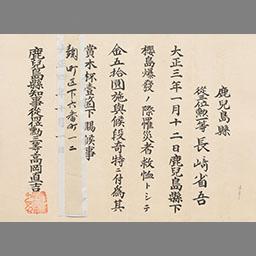 鹿兒島縣
從三位勲二等 長崎省吾
大正三年一月十二日鹿兒島縣下
櫻島爆發ノ際罹災者救恤トシテ
金五拾圓施與候段奇特ニ付為其
賞木杯壹個下賜候事
麹町区下六番町一二
鹿兒島縣知事從四位勲三等高岡直吉